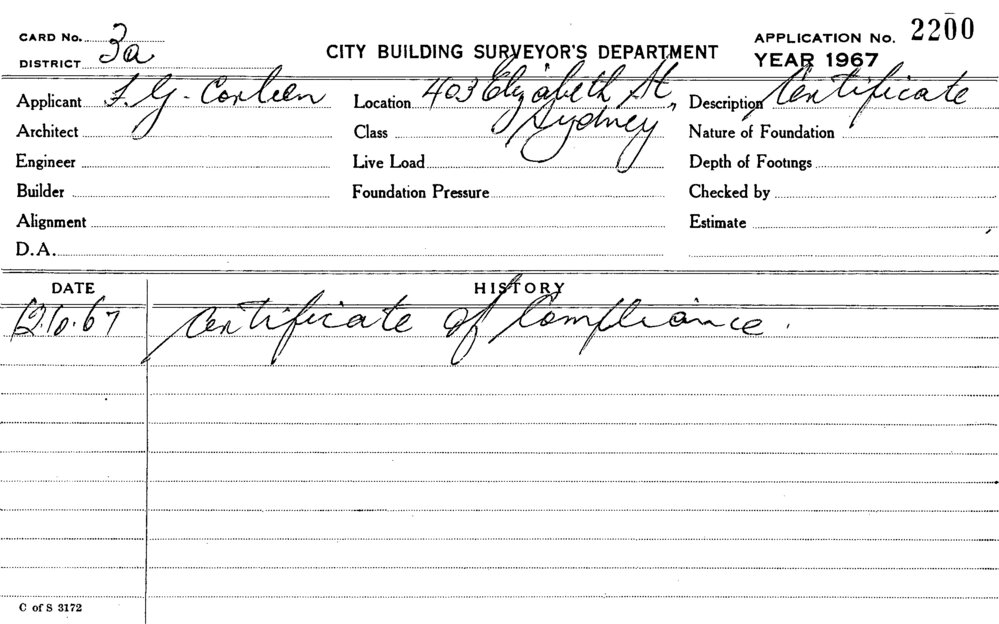 CARD No.
DISTRICT 3a
CITY BUILDING SURVEYOR'S DEPARTMENT
APPLICATION No. 2200
YEAR 1967
Applicant F. G.
Location 403 Elizabeth St, Sydney
Description Certificate
Architect
Class
Nature of Foundation
Engineer
Live Load
Depth of Footings
Builder
Foundation Pressure
Checked by
Alignment
Estimate
D.A.
DATE
HISTORY
12.10.67 Certificate of Compliance.
C of S 3172